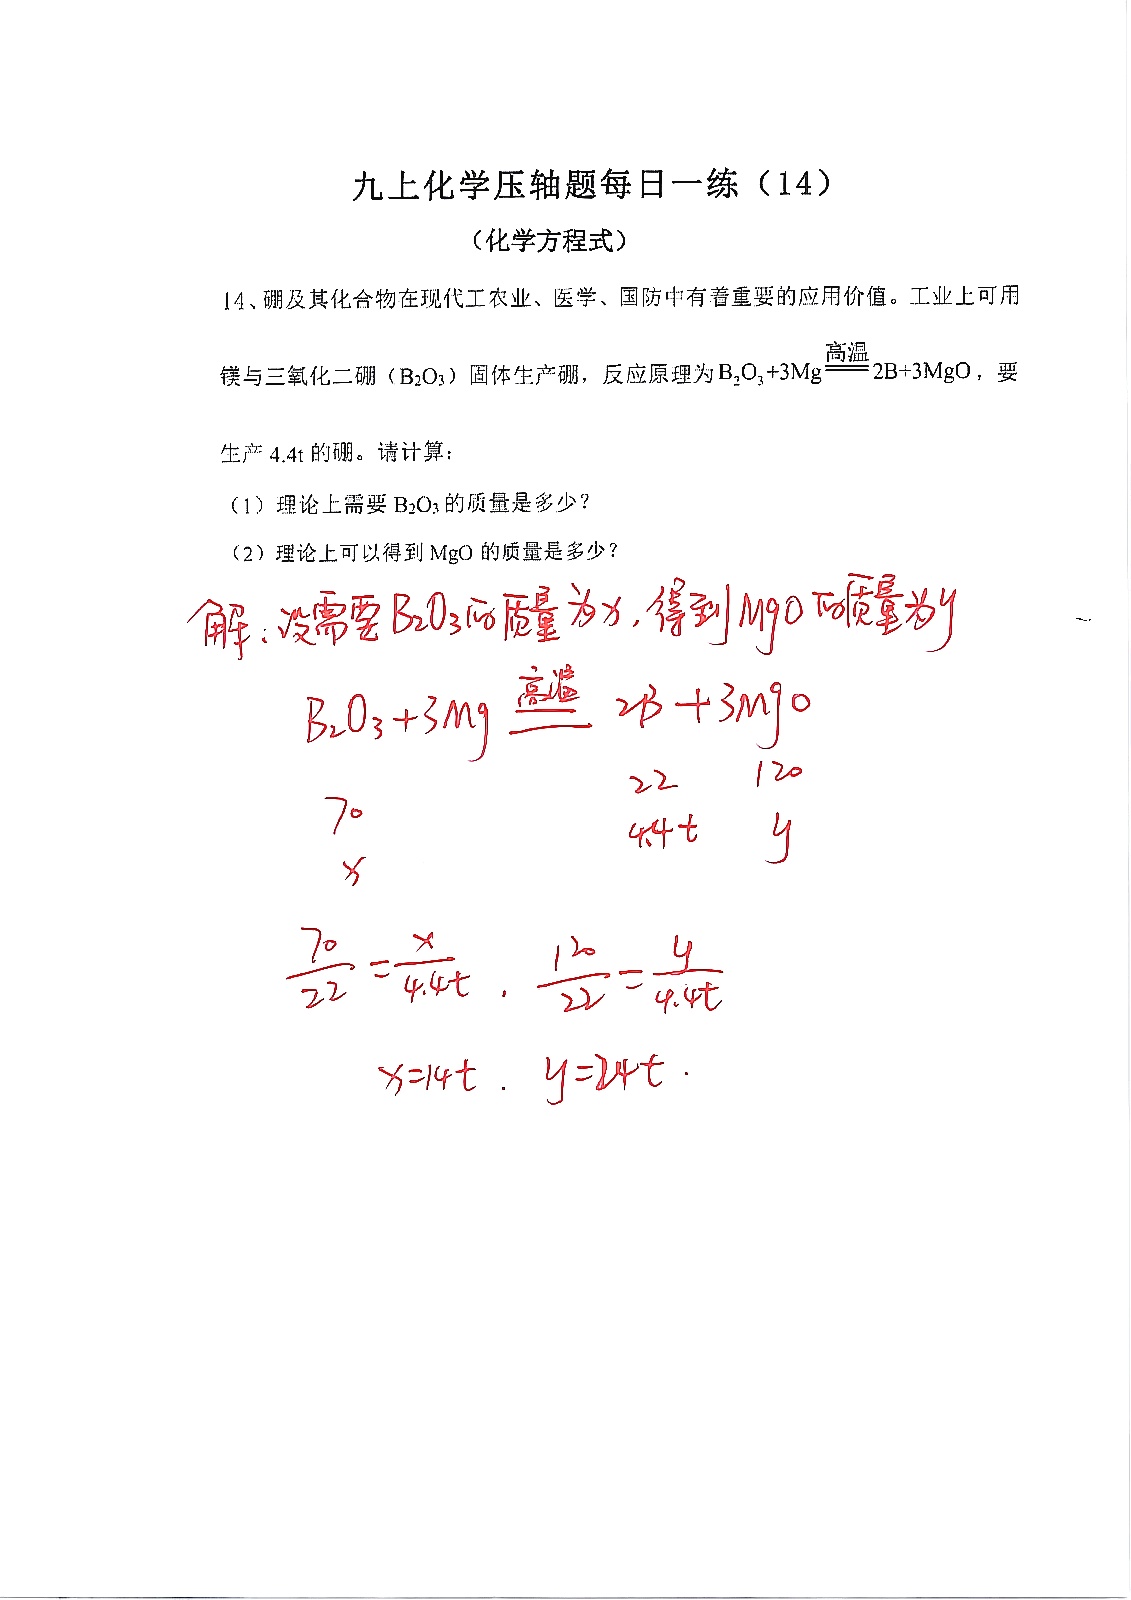 九上化学压轴题每日一练（14）
（化学方程式）
14、硼及其化合物在现代工农业、医学、国防中有着重要的应用价值。工业上可用
镁与三氧化二硼（B₂O₃）固体生产硼，反应原理为B₂O₃+3Mg=高温=2B+3MgO，要
生产 4.4t 的硼。请计算：
（1）理论上需要 B₂O₃ 的质量是多少？
（2）理论上可以得到 MgO 的质量是多少？
解：设需要B₂O₃的质量为x，得到MgO的质量为y
B₂O₃+3Mg =高温= 2B+3MgO
22 120
70
4.4t y
x
70/22=x/4.4t，120/22=y/4.4t
x=14t. y=24t.